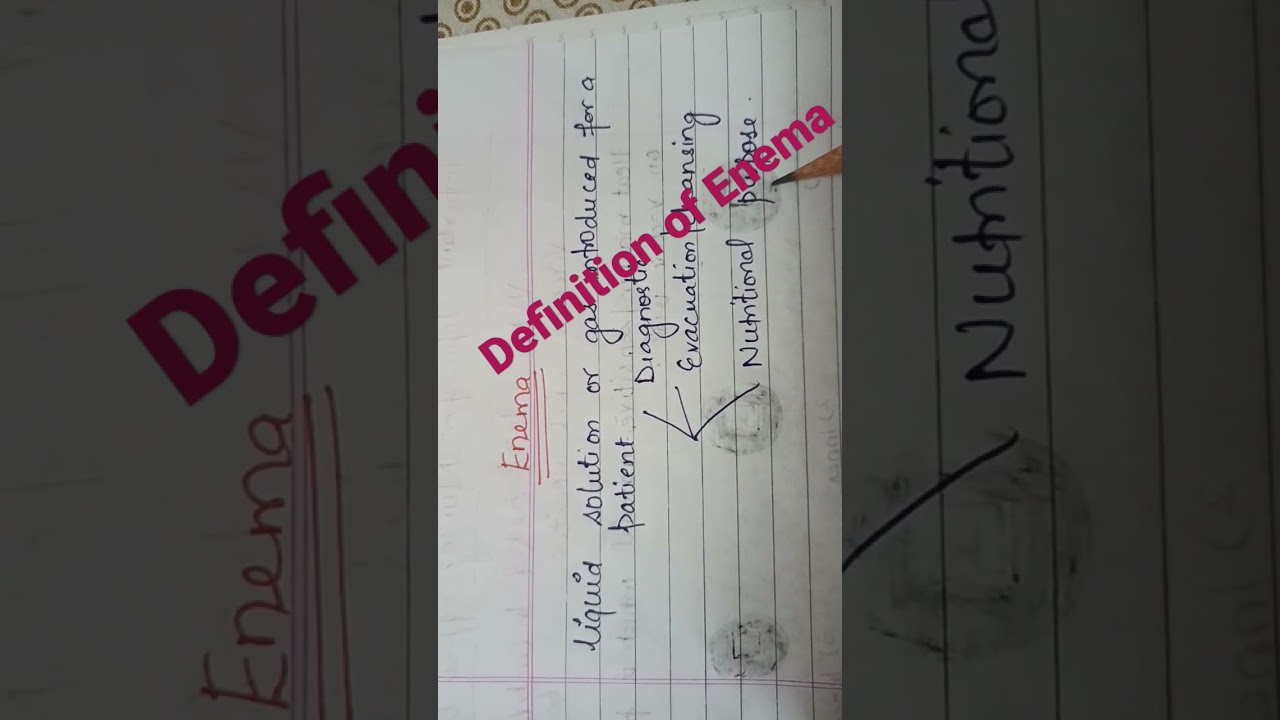 Definition of Enema
Enema
liquid solution or gas introduced for a
patient
Diagnostic
Evacuation/cleansing
Nutritional purpose.
Defini
Enema
Nutritional